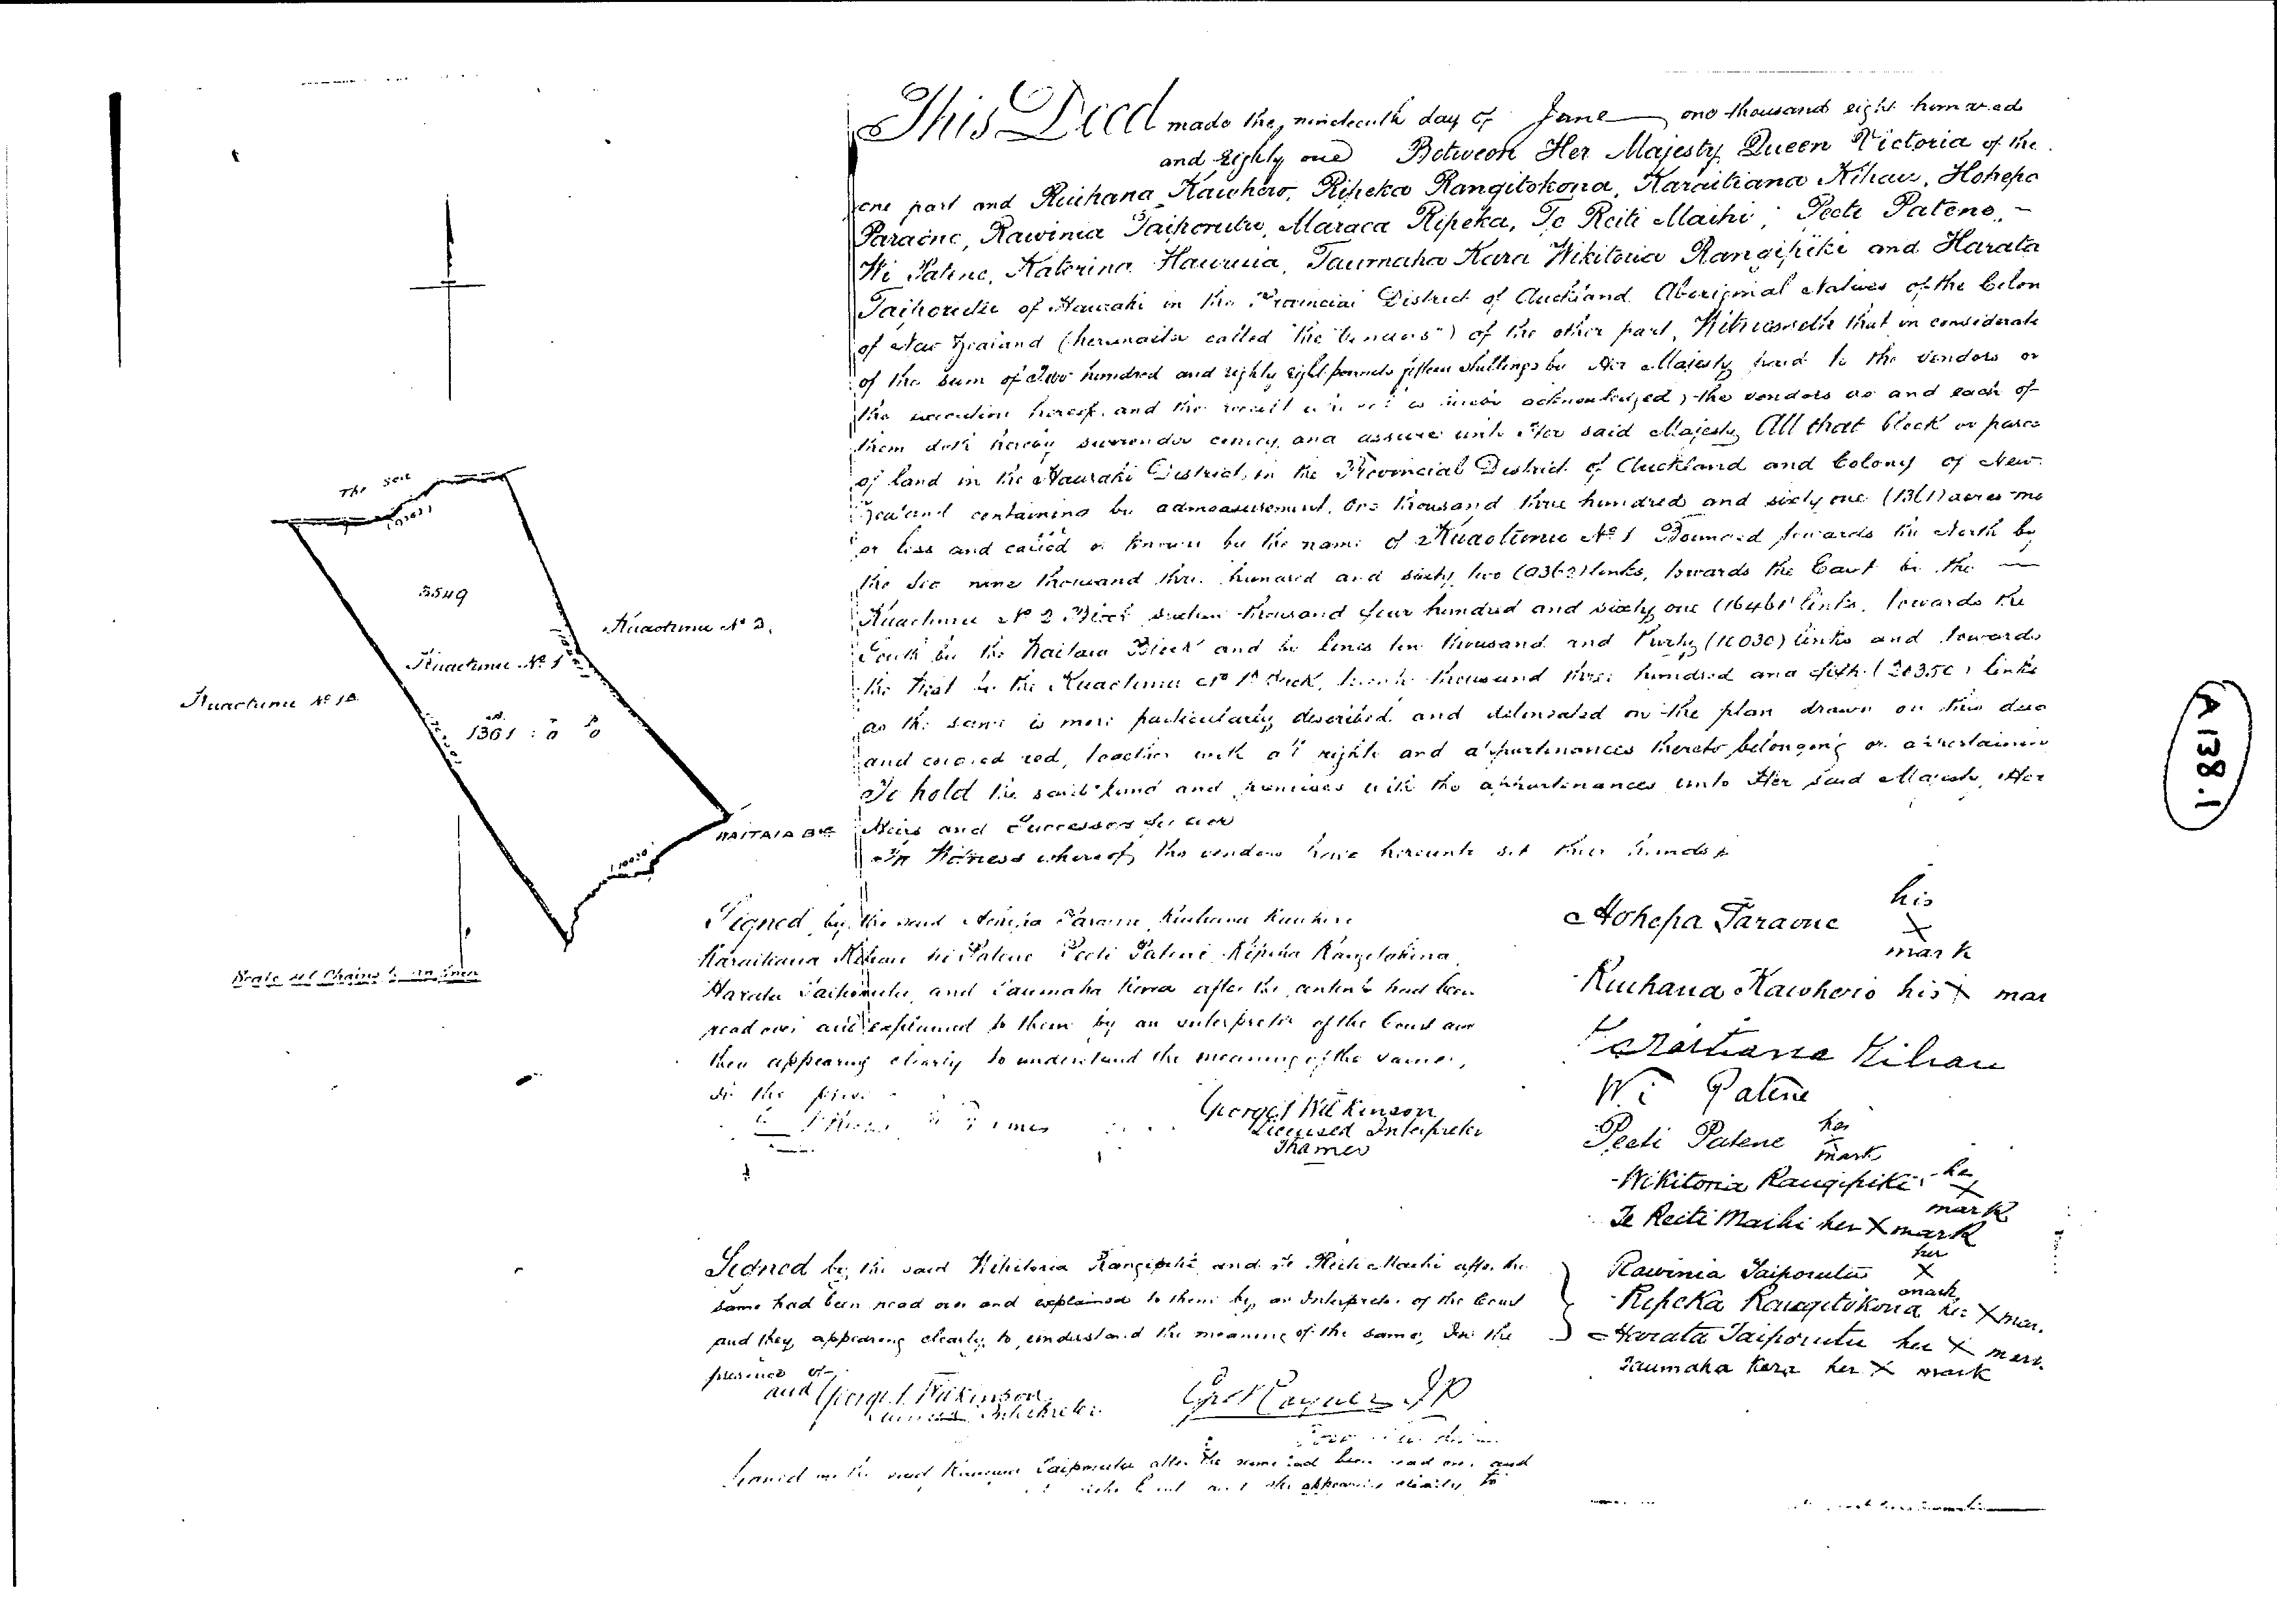 This Deed made the nineteenth day of June one thousand eight hundred
and Eighty one Between Her Majesty Queen Victoria of the
one part and Ruihana Kawhero, Ripeka Rangitokona, Karaitiana Kihau, Hohepa
Paraone, Rawinia Taiporutu, Maraea Ripeka, Te Reiti Maihi, Peeti Patene,
Wi Patene, Katerina Hauruia, Taumaha Kara Wikitoria Rangipiki and Harata
Taiporutu of Hauraki in the Provincial District of Auckland Aboriginal Natives of the Colon
of New Zealand (hereinafter called "the vendors") of the other part, Witnesseth that in considerate
of the sum of Two hundred and eighty eight pounds fifteen shillings by Her Majesty paid to the vendors on
the execution hereof and the receipt is acknowledged) the vendors do and each of
them doth hereby surrender convey and assure unto Her said Majesty All that block or parce
of land in the Hauraki District in the Provincial District of Auckland and Colony of New
Zealand containing by admeasurement, One thousand three hundred and sixty one (1361) acres mo
or less and called or known by the name of Kuaotunu No 1 Bounded towards the North by
the Sea nine thousand three hundred and sixty two (9362) links, towards the East by the
Kuaotunu No 2 Block sixteen thousand four hundred and sixty one (16461) links, towards the
South by the Kaitaia Block and by lines ten thousand and thirty (10030) links and towards
the West by the Kuaotunu No 1A Block, twenty thousand three hundred and fifty (20350) links
as the same is more particularly described and delineated on the plan drawn on this deed
and colored red, together with all rights and appurtenances thereto belonging or appertaining
To hold the said land and premises with the appurtenances unto Her said Majesty Her
Heirs and Successors for ever
In Witness whereof the vendors have hereunto set their hands
The Sea
(9362)
3549
Kuaotunu No 2.
Kuaotunu No 1
Kuaotunu No 1A
1361 : 0 0
KAITAIA Blk
(10030)
Scale 20 Chains to an inch
A 138.1
Signed by the said Hohepa Paraone Ruihana Kawhero
Karaitiana Kihau Wi Patene Peeti Patene Ripeka Rangitokona
Harata Taiporutu and Taumaha Kera after the contents had been
read over and explained to them by an interpreter of the Court and
they appearing clearly to understand the meaning of the same,
in the
George T Wilkinson
Licensed Interpreter
Thames
Hohepa Paraone his
X
mark
Ruihana Kawhero his X mar
Karaitiana Kihau
Wi Patene
Peeti Patene her
mark
Wikitoria Rangipiki he
X
mark
Te Reiti Maihi her X mark
Rawinia Taiporutu her
X
mark
Ripeka Rangitokona her X mar.
Harata Taiporutu her X mark
Taumaha Kera her X mark
Signed by the said Wikitoria Rangipiki and Te Reiti Maihi after the
same had been read over and explained to them by an Interpreter of the Court
and they appearing clearly to understand the meaning of the same, In the
presence of
and George T. Wilkinson
Licensed Interpreter
JP
Signed by the said Rawinia Taiporutu after the same had been read over and
she appearing clearly to